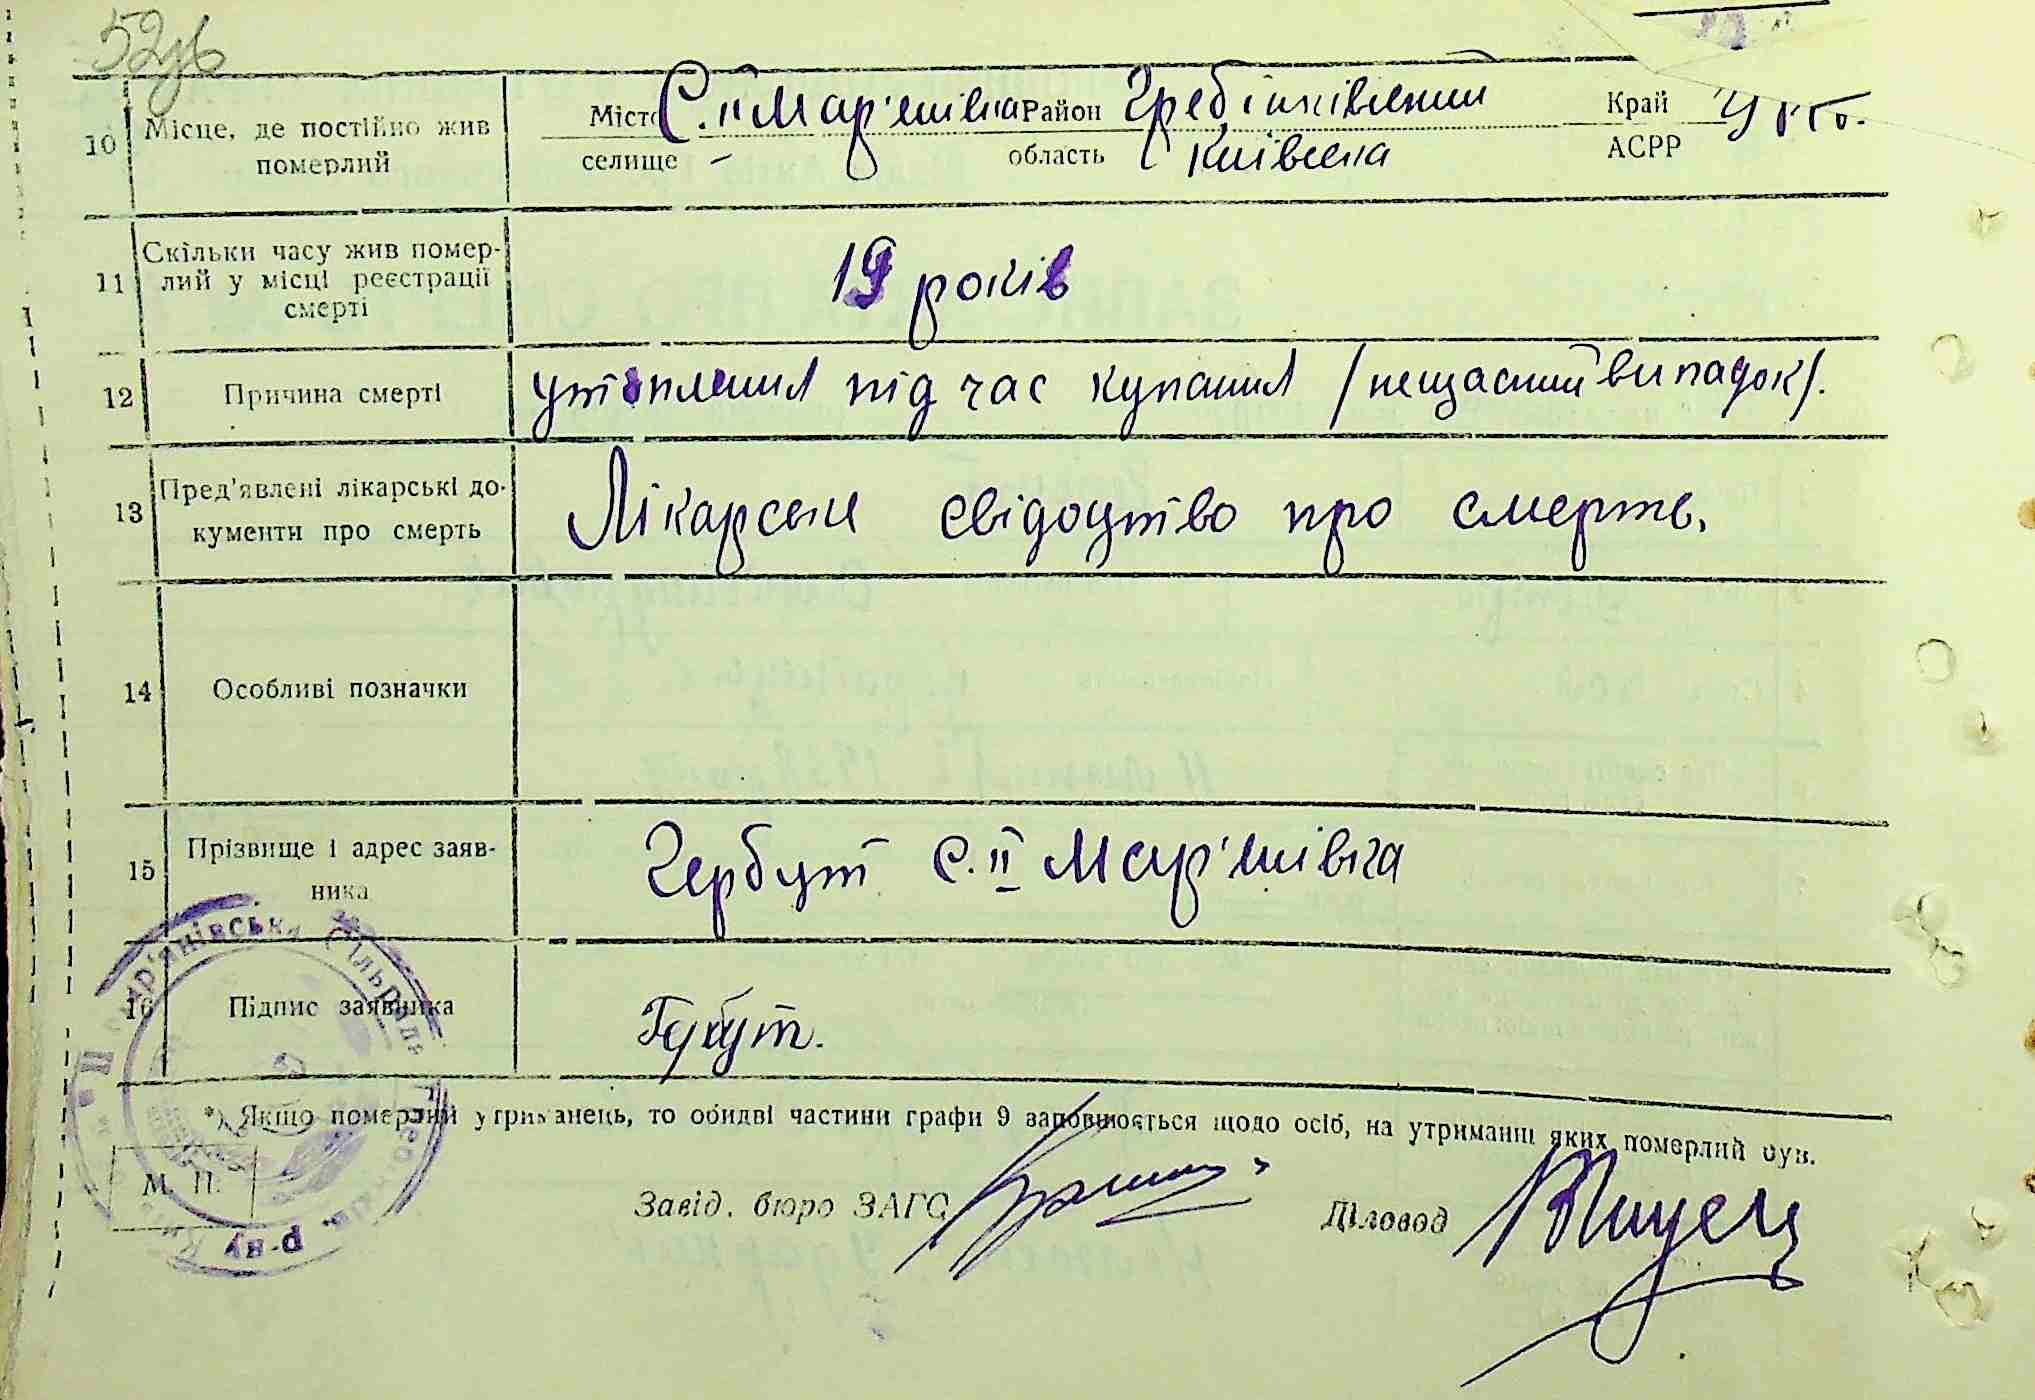 52зв
10 Місце, де постійно жив померлий
Місто С. ІІ Мар'янівка Район Гребінківський Край УРСР.
селище - область Київська АСРР
11 Скільки часу жив помер-
лий у місці реєстрації
смерті
19 років
12 Причина смерті
утоплення під час купання /нещасний випадок/.
13 Пред'явлені лікарські до-
кументи про смерть
Лікарське свідоцтво про смерть.
14 Особливі позначки
15 Прізвище і адрес заяв-
ника
Гербут С. ІІ Мар'янівка
16 Підпис заявника
Гербут.
*) Якщо померлий утриманець, то обидві частини графи 9 заповнюється щодо осіб, на утриманні яких померлий був.
М. П.
Завід. бюро ЗАГС
Діловод
ІІ Мар'янівська сільрада
р-ну